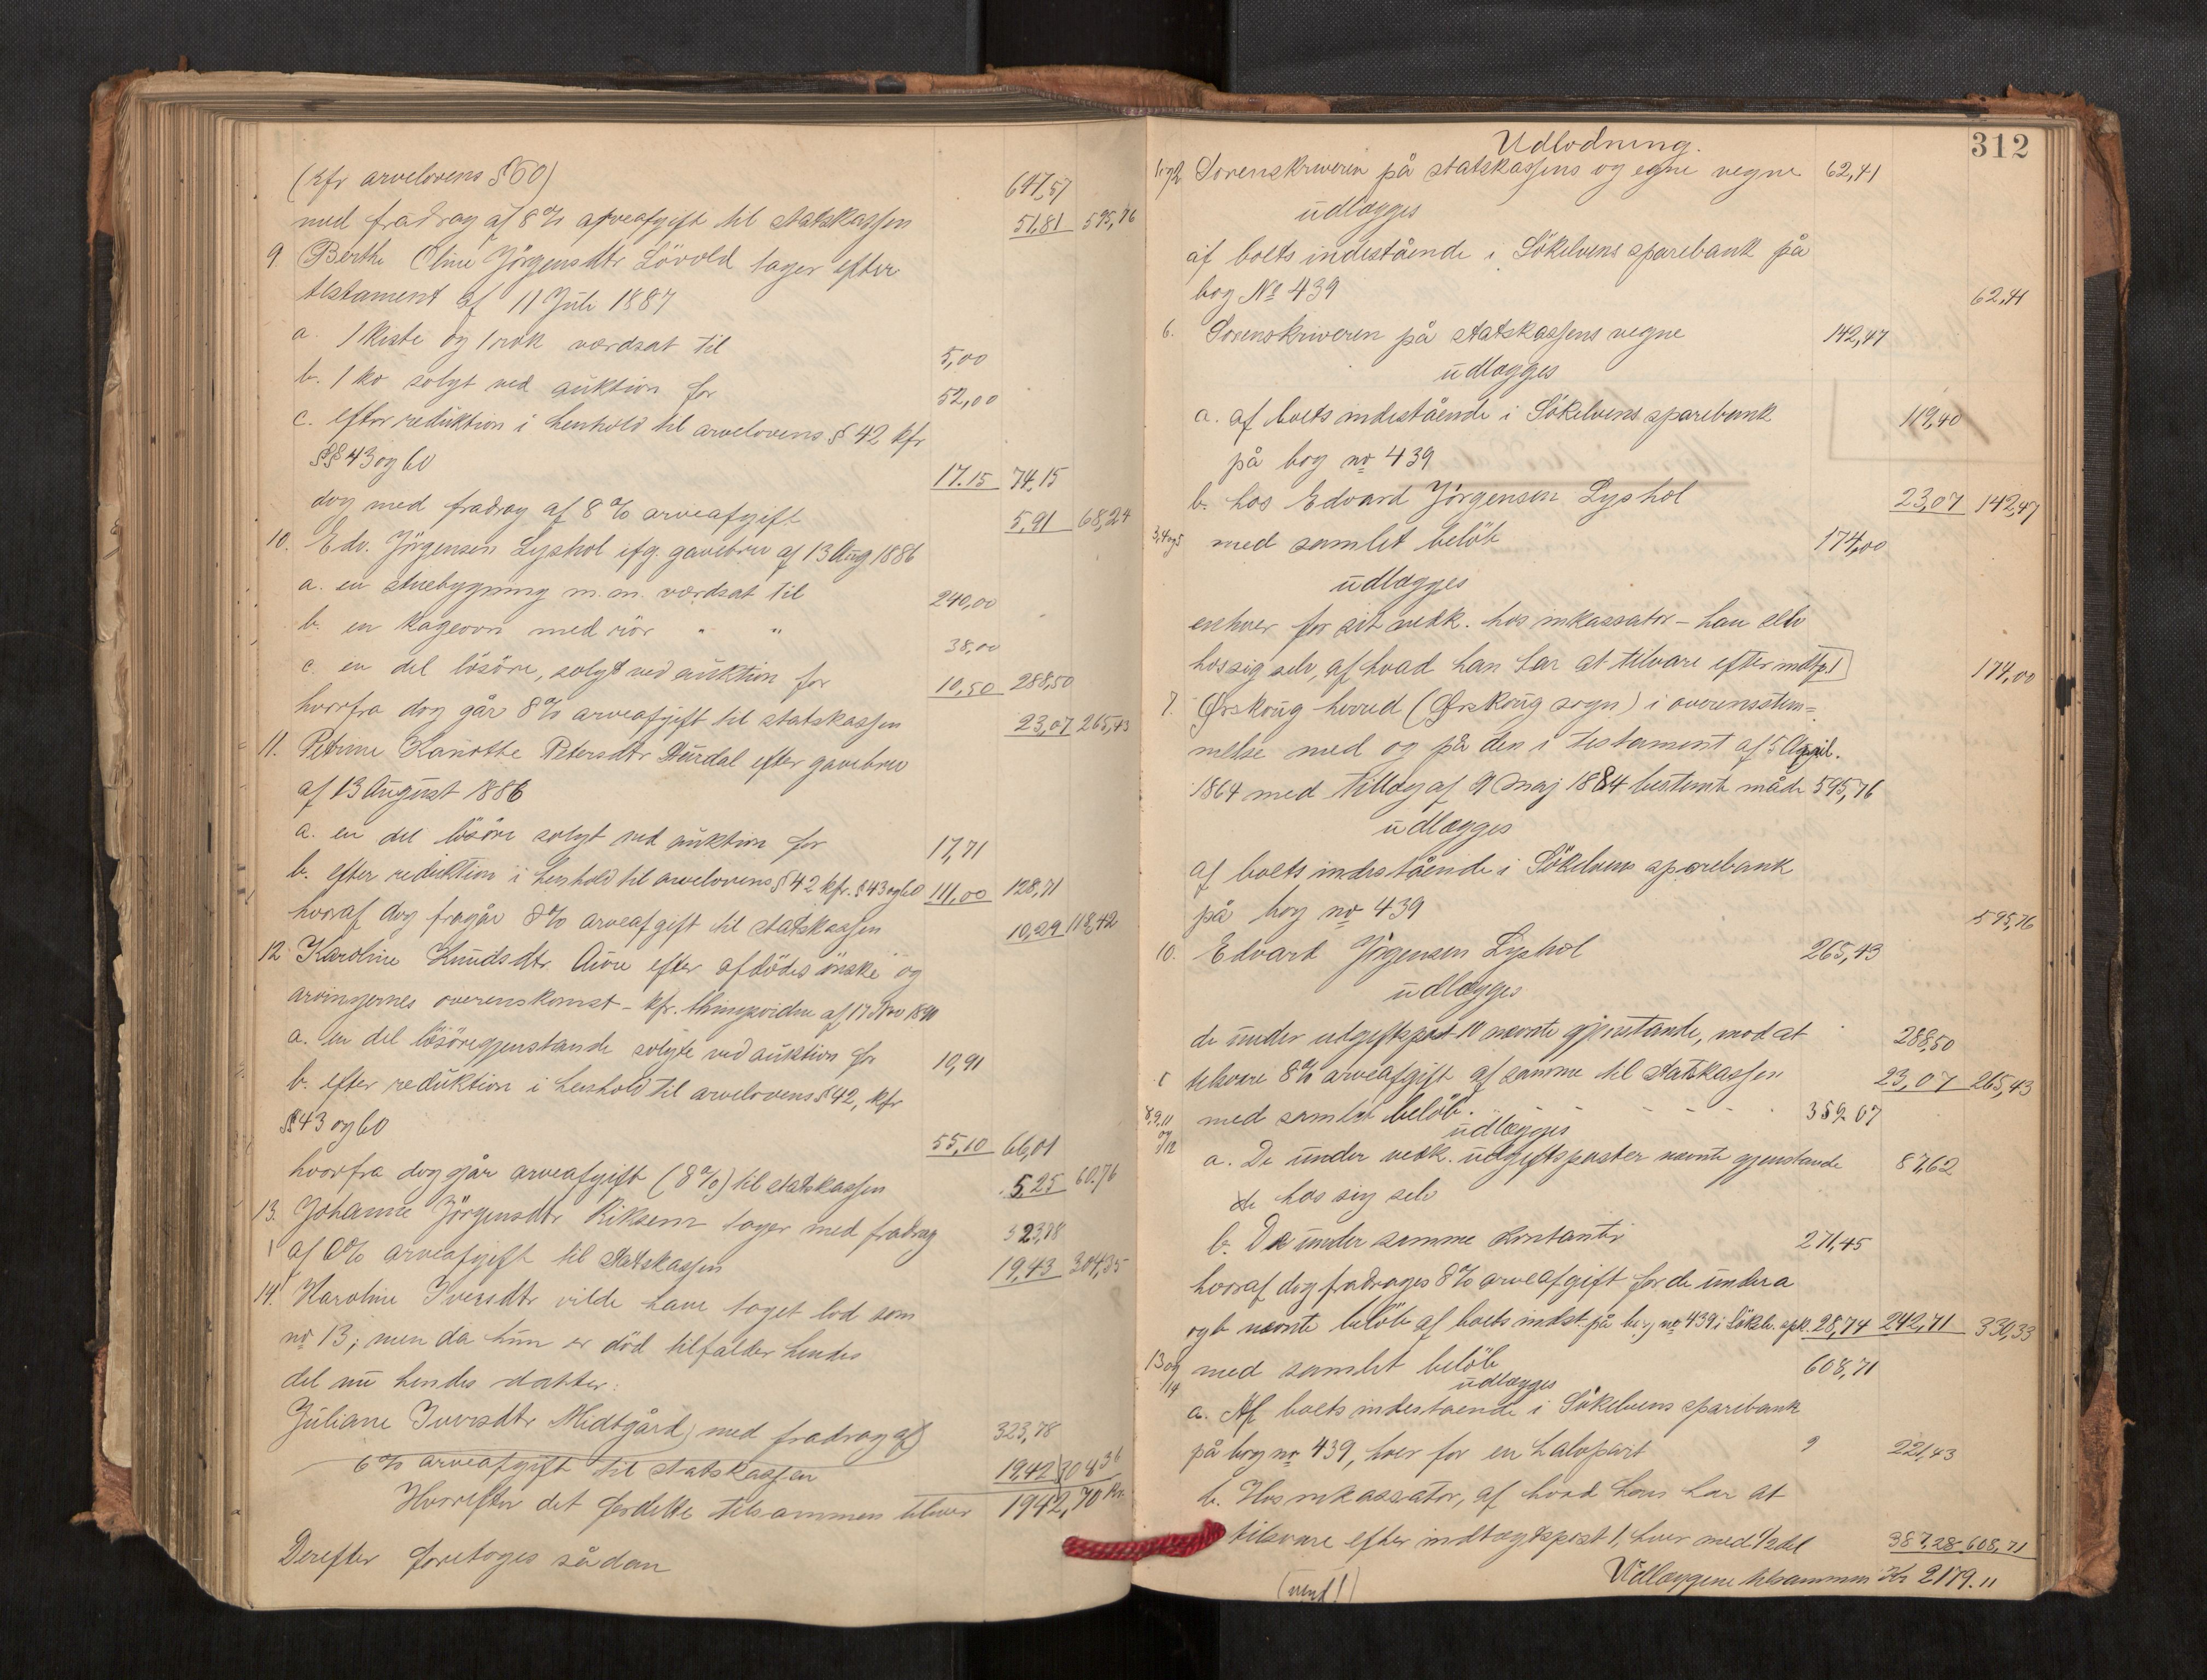 (kfr arvelovens § 60) 647,57
med fradrag af 8 % arveafgift til statskassen 51,81 595,76
9. Berthe Oline Jörgensdtr Lövold tager efter
testament af 11 Juli 1887
a. 1 kiste og 1 rok værdsat til 5,00
b. 1 ko solgt ved auktion for 52,00
c. efter reduktion i henhold til arvelovens § 42 kfr
§§ 43 og 60 17.15 74,15
dog med fradrag af 8 % arveafgift 5,91 68,24
10. Edv. Jörgensen Lyshol ifg. gavebrev af 13 Aug 1886
a. en stuebygning m.m. værdsat til 240,00
b. en kageovn med rör " " 38,00
c. en del lösöre, solgt ved auktion for 10,50 288,50
hvorfra dog går 8 % arveafgift til statskassen 23,07 265,43
11. Petrine Petersdtr efter gavebrev
af 13 August 1886
a. en del lösöre solgt ved auktion for 17,71
b. efter reduktion i henhold til arvelovens § 42 kfr. § 43 og 60 111,00 128,71
hvoraf dog fragår 8 % arveafgift til statskassen 10,29 118,42
12. Karoline Knudsdtr Aure efter afdödes önske og
arvingernes overenskomst - kfr. af 17 Nov 1890
a. en del lösöregjenstande solgte ved auktion for 10,91
b. efter reduktion i henhold til arvelovens § 42, kfr
§§ 43 og 60 55,10 66,01
hvorfra dog går arveafgift (8 %) til statskassen 5,25 60.76
13. Johanne Jörgensdtr Riksem tager med fradrag 323,78
af 6 % arveafgift til statskassen 19,43 304,35
14. Karoline Iversdtr vilde have taget lod som
no 13; men da hun er död tilfalder hendes
del nu hendes datter:
Juliane Iversdtr Midtgård, med fradrag af 323,78
6 % arveafgift til statskassen 19,42 304 36
Hvorefter det fordelte tilsammen bliver 1942,70 Kr.
Derefter foretoges sådan
312
Udlodning.
1 og 2 Sorenskriveren på statskassens og egne vegne 62,41
udlægges
af boets indestående i Sökelvens sparebank på
bog No 439 62,41
6. Sorenskriveren på statskassens vegne 142,47
udlægges
a. af boets indestående i Sökelvens sparebank 119,40
på bog no 439
b. hos Edvard Jörgensen Lyshol 23,07 142,47
3,4 og 5 med samlet belöb 174,00
udlægges
enhver for sit vedk. hos inkassator - han selv
hos sig selv, af hvad han har at tilsvare efter indtp. 1 174,00
7. Ørskoug herred (Ørskoug sogn) i overensstem=
melse med og på den i testament af 5 April
1864 med tillæg af 9 Maj 1884 bestemte måde 595,76
udlægges
af boets indestående i Sökelvens sparebank
på bog no 439 595,76
10. Edvard Jörgensen Lyshol 265,43
udlægges
de under udgiftspost 10 nævnte gjenstande, mod at 288,50
tilsvare 8 % arveafgift af samme til statskassen 23,07 265,43
8,9,11 og 12 med samlet belöb. 359 07
udlægges
a. De under vedk. udgiftsposter nævnte gjenstande 87,62
de hos sig selv
b. De under samme kontanter 271,45
hvoraf dog fradrages 8 % arveafgift for de under a
og b nævnte belöb af boets indst. på bog no 439 i Sökelv. spk. 28,74 242,71 330,33
13 og 14 med samlet belöb 608,71
udlægges
a. Af boets indestående i Sökelvens sparebank
på bog no 439, hver for en halvpart 221,43
b. Hos inkassator, af hvad han har at
tilsvare efter indtægtspost 1, hver med 1/2 del 387,28 608,71
Udlæggene tilsammen Kr 2179.11
(vend!)